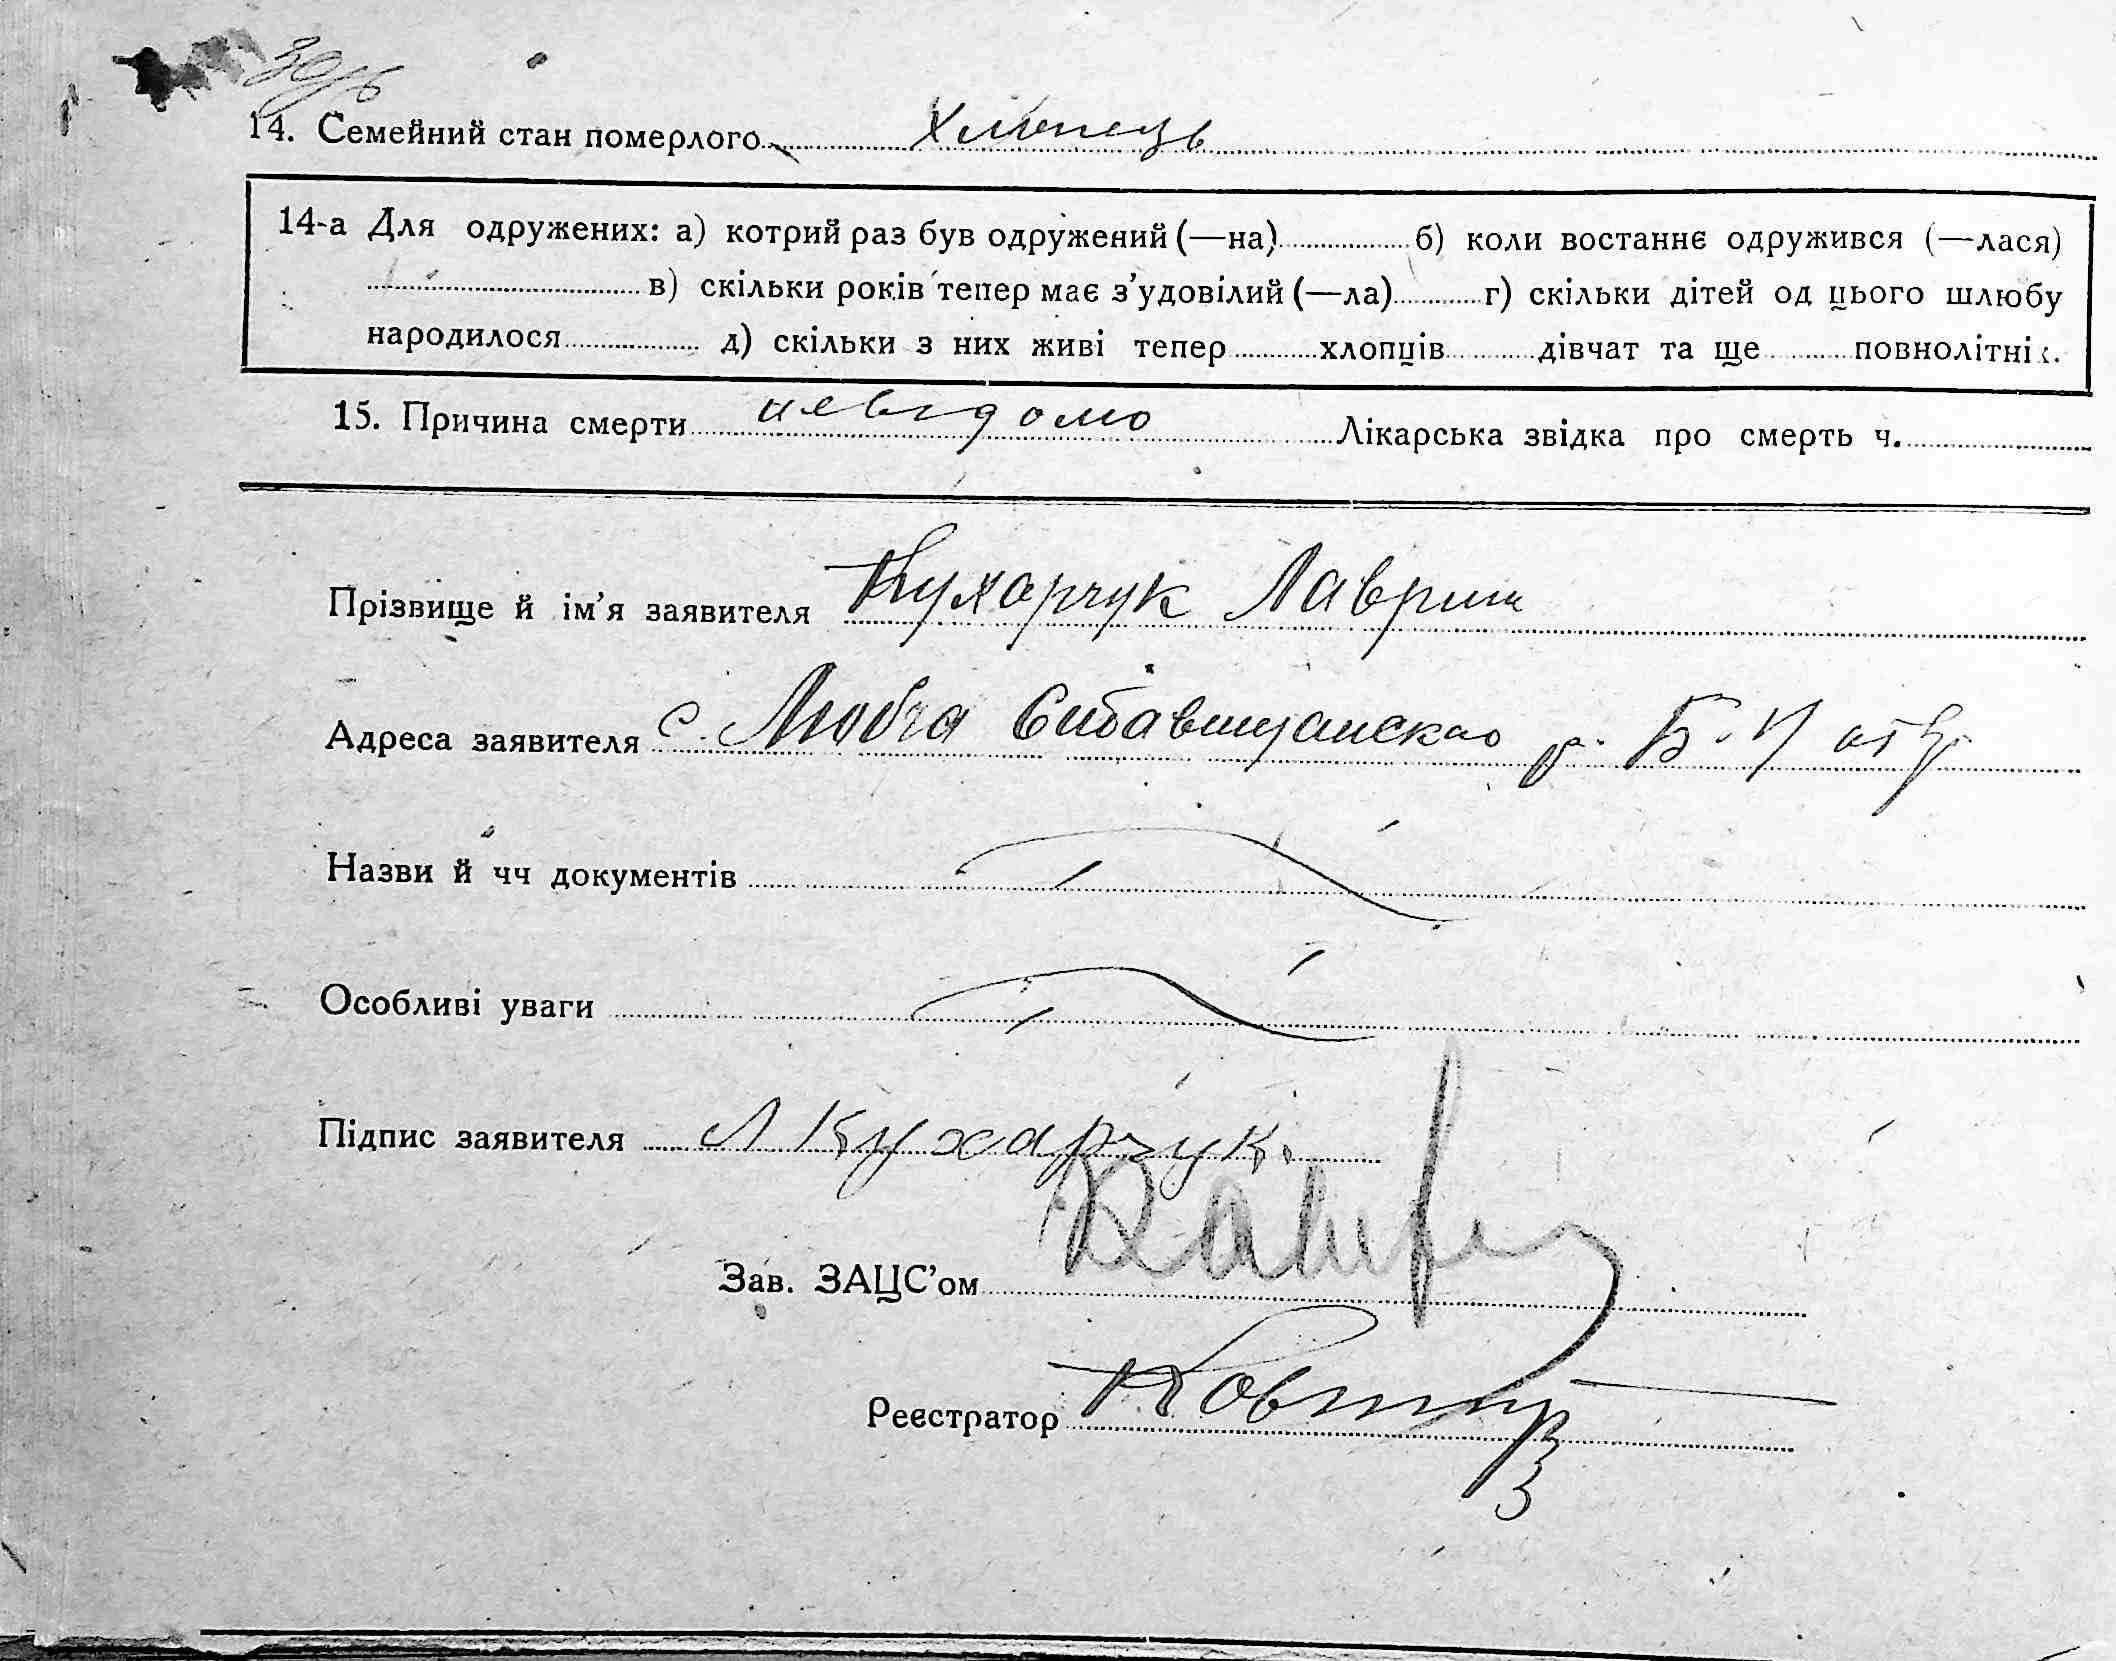 14. Семейний стан померлого хлопець
14-а Для одружених: а) котрий раз був одружений (—на) б) коли востаннє одружився (—лася)
в) скільки років тепер має з'удовілий (—ла) г) скільки дітей од цього шлюбу
народилося д) скільки з них живі тепер хлопців дівчат та ще повнолітніх.
15. Причина смерти невідомо Лікарська звідка про смерть ч.
Прізвище й ім'я заявителя Кухарчук Лаврин
Адреса заявителя с. Любча р. Б.
Назви й чч документів
Особливі уваги
Підпис заявителя Л Кухарчук
Зав. ЗАЦС'ом
Реєстратор